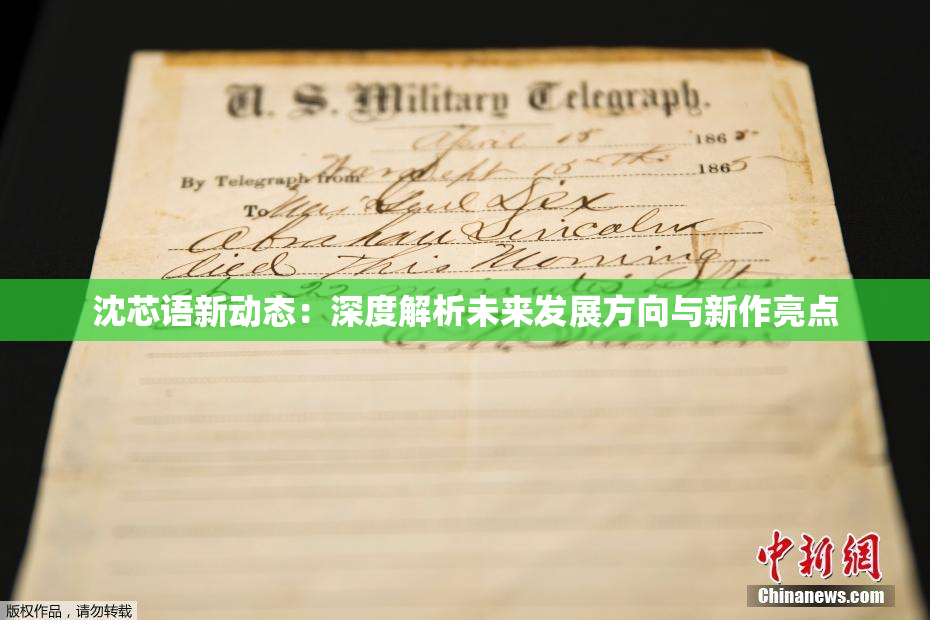 U. S. Military Telegraph.
April 15 1865
By Telegraph from War Dept 15th 1865
To Maj Genl Dix
Abraham Lincoln
died This Morning
22 minutes after
沈芯语新动态：深度解析未来发展方向与新作亮点
中新网
Chinanews.com
版权作品，请勿转载